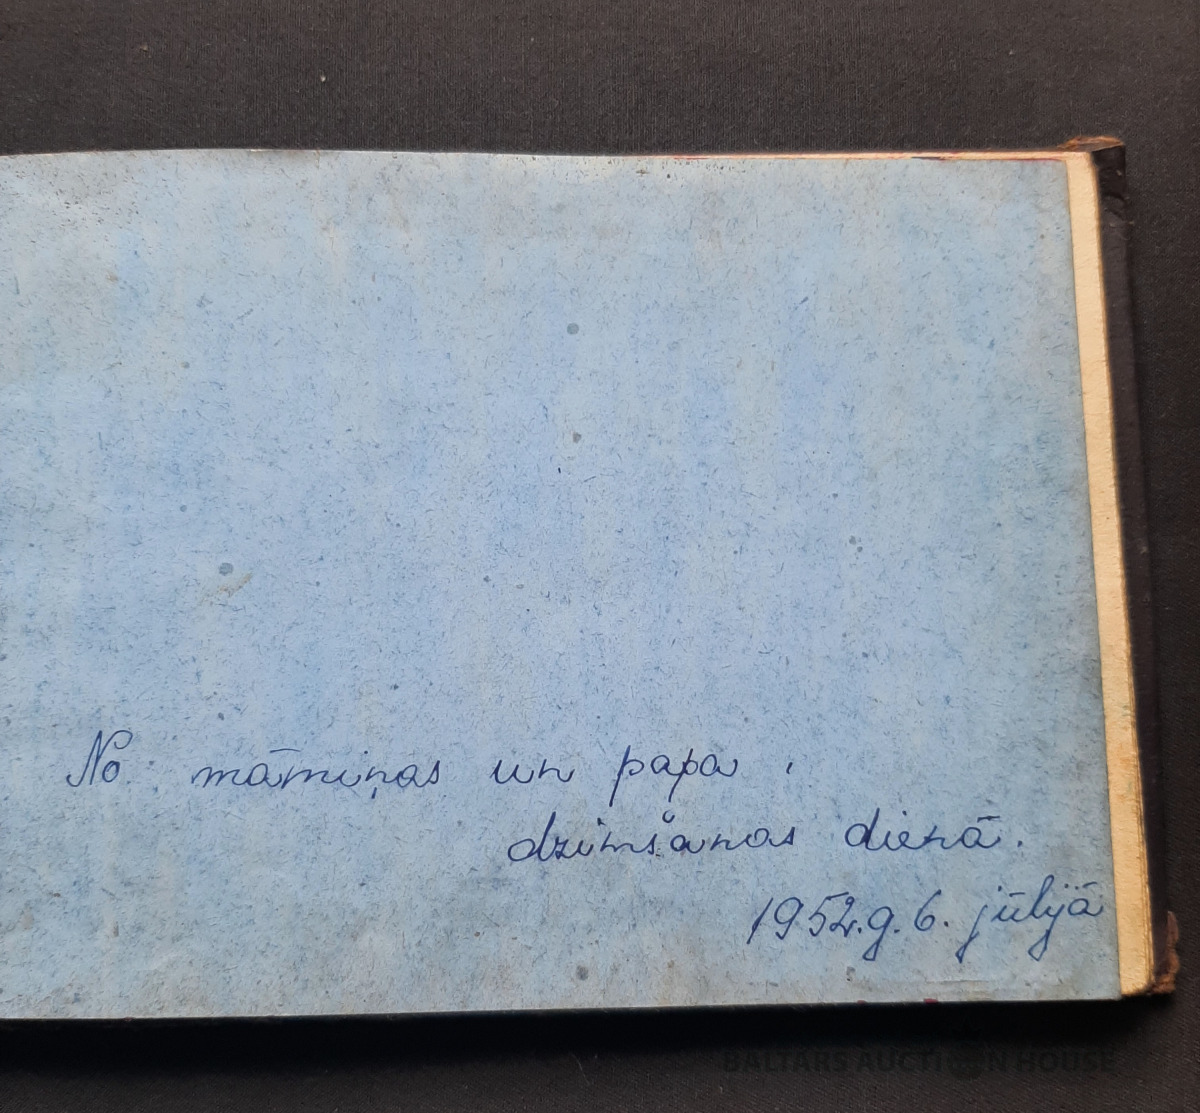 No māmiņas un papa,
dzimšanas dienā.
1952.g.6. jūlijā
BALTARS AUCTION HOUSE